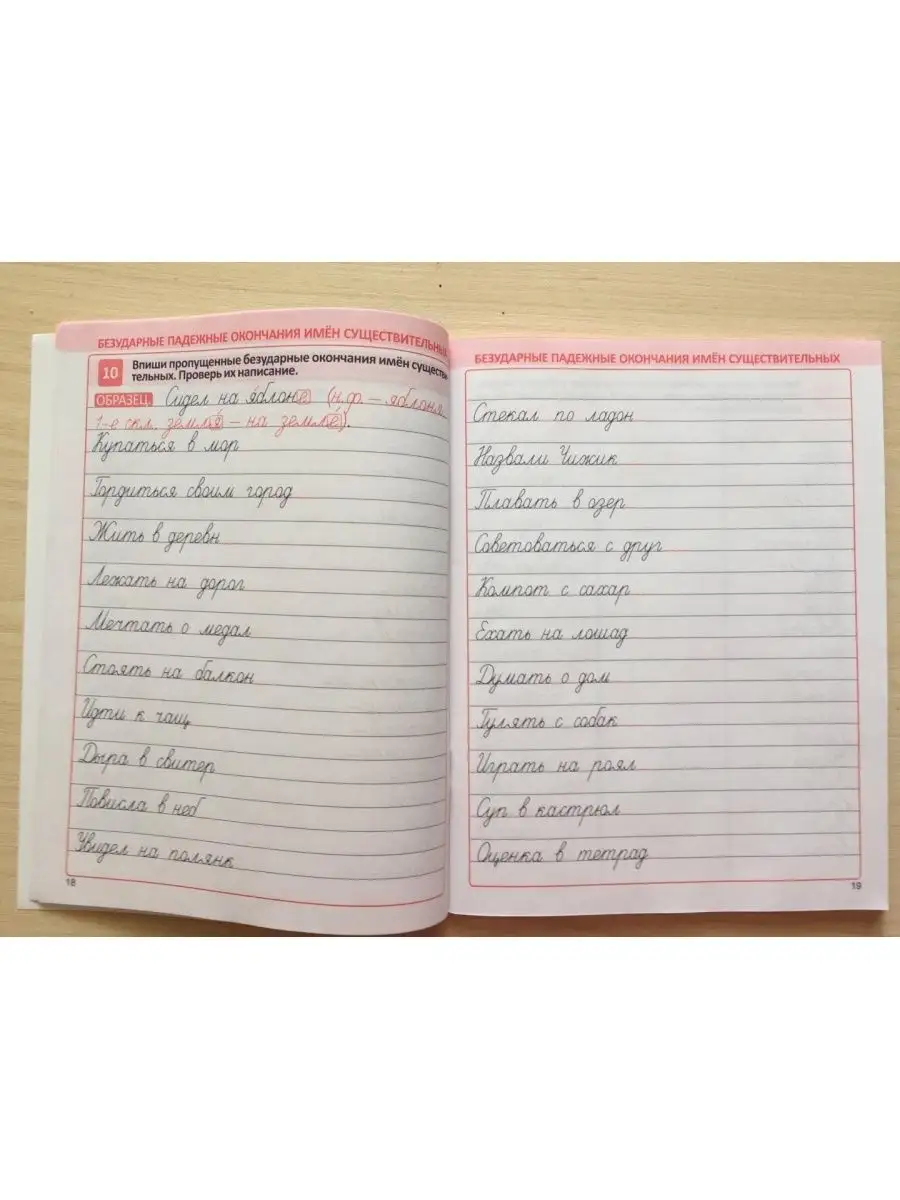 БЕЗУДАРНЫЕ ПАДЕЖНЫЕ ОКОНЧАНИЯ ИМЁН СУЩЕСТВИТЕЛЬНЫХ
10 Впиши пропущенные безударные окончания имён существи-
тельных. Проверь их написание.
ОБРАЗЕЦ. Сидел на я́блоне (н.ф. – яблоня,
1-е скл. земля́ – на земле́).
Купаться в мор
Гордиться своим город
Жить в деревн
Лежать на дорог
Мечтать о медал
Стоять на балкон
Идти к чащ
Дыра в свитер
Повисла в неб
Увидел на полянк
18
БЕЗУДАРНЫЕ ПАДЕЖНЫЕ ОКОНЧАНИЯ ИМЁН СУЩЕСТВИТЕЛЬНЫХ
Стекал по ладон
Назвали Чижик
Плавать в озер
Советоваться с друг
Компот с сахар
Ехать на лошад
Думать о дом
Гулять с собак
Играть на роял
Суп в кастрюл
Оценка в тетрад
19